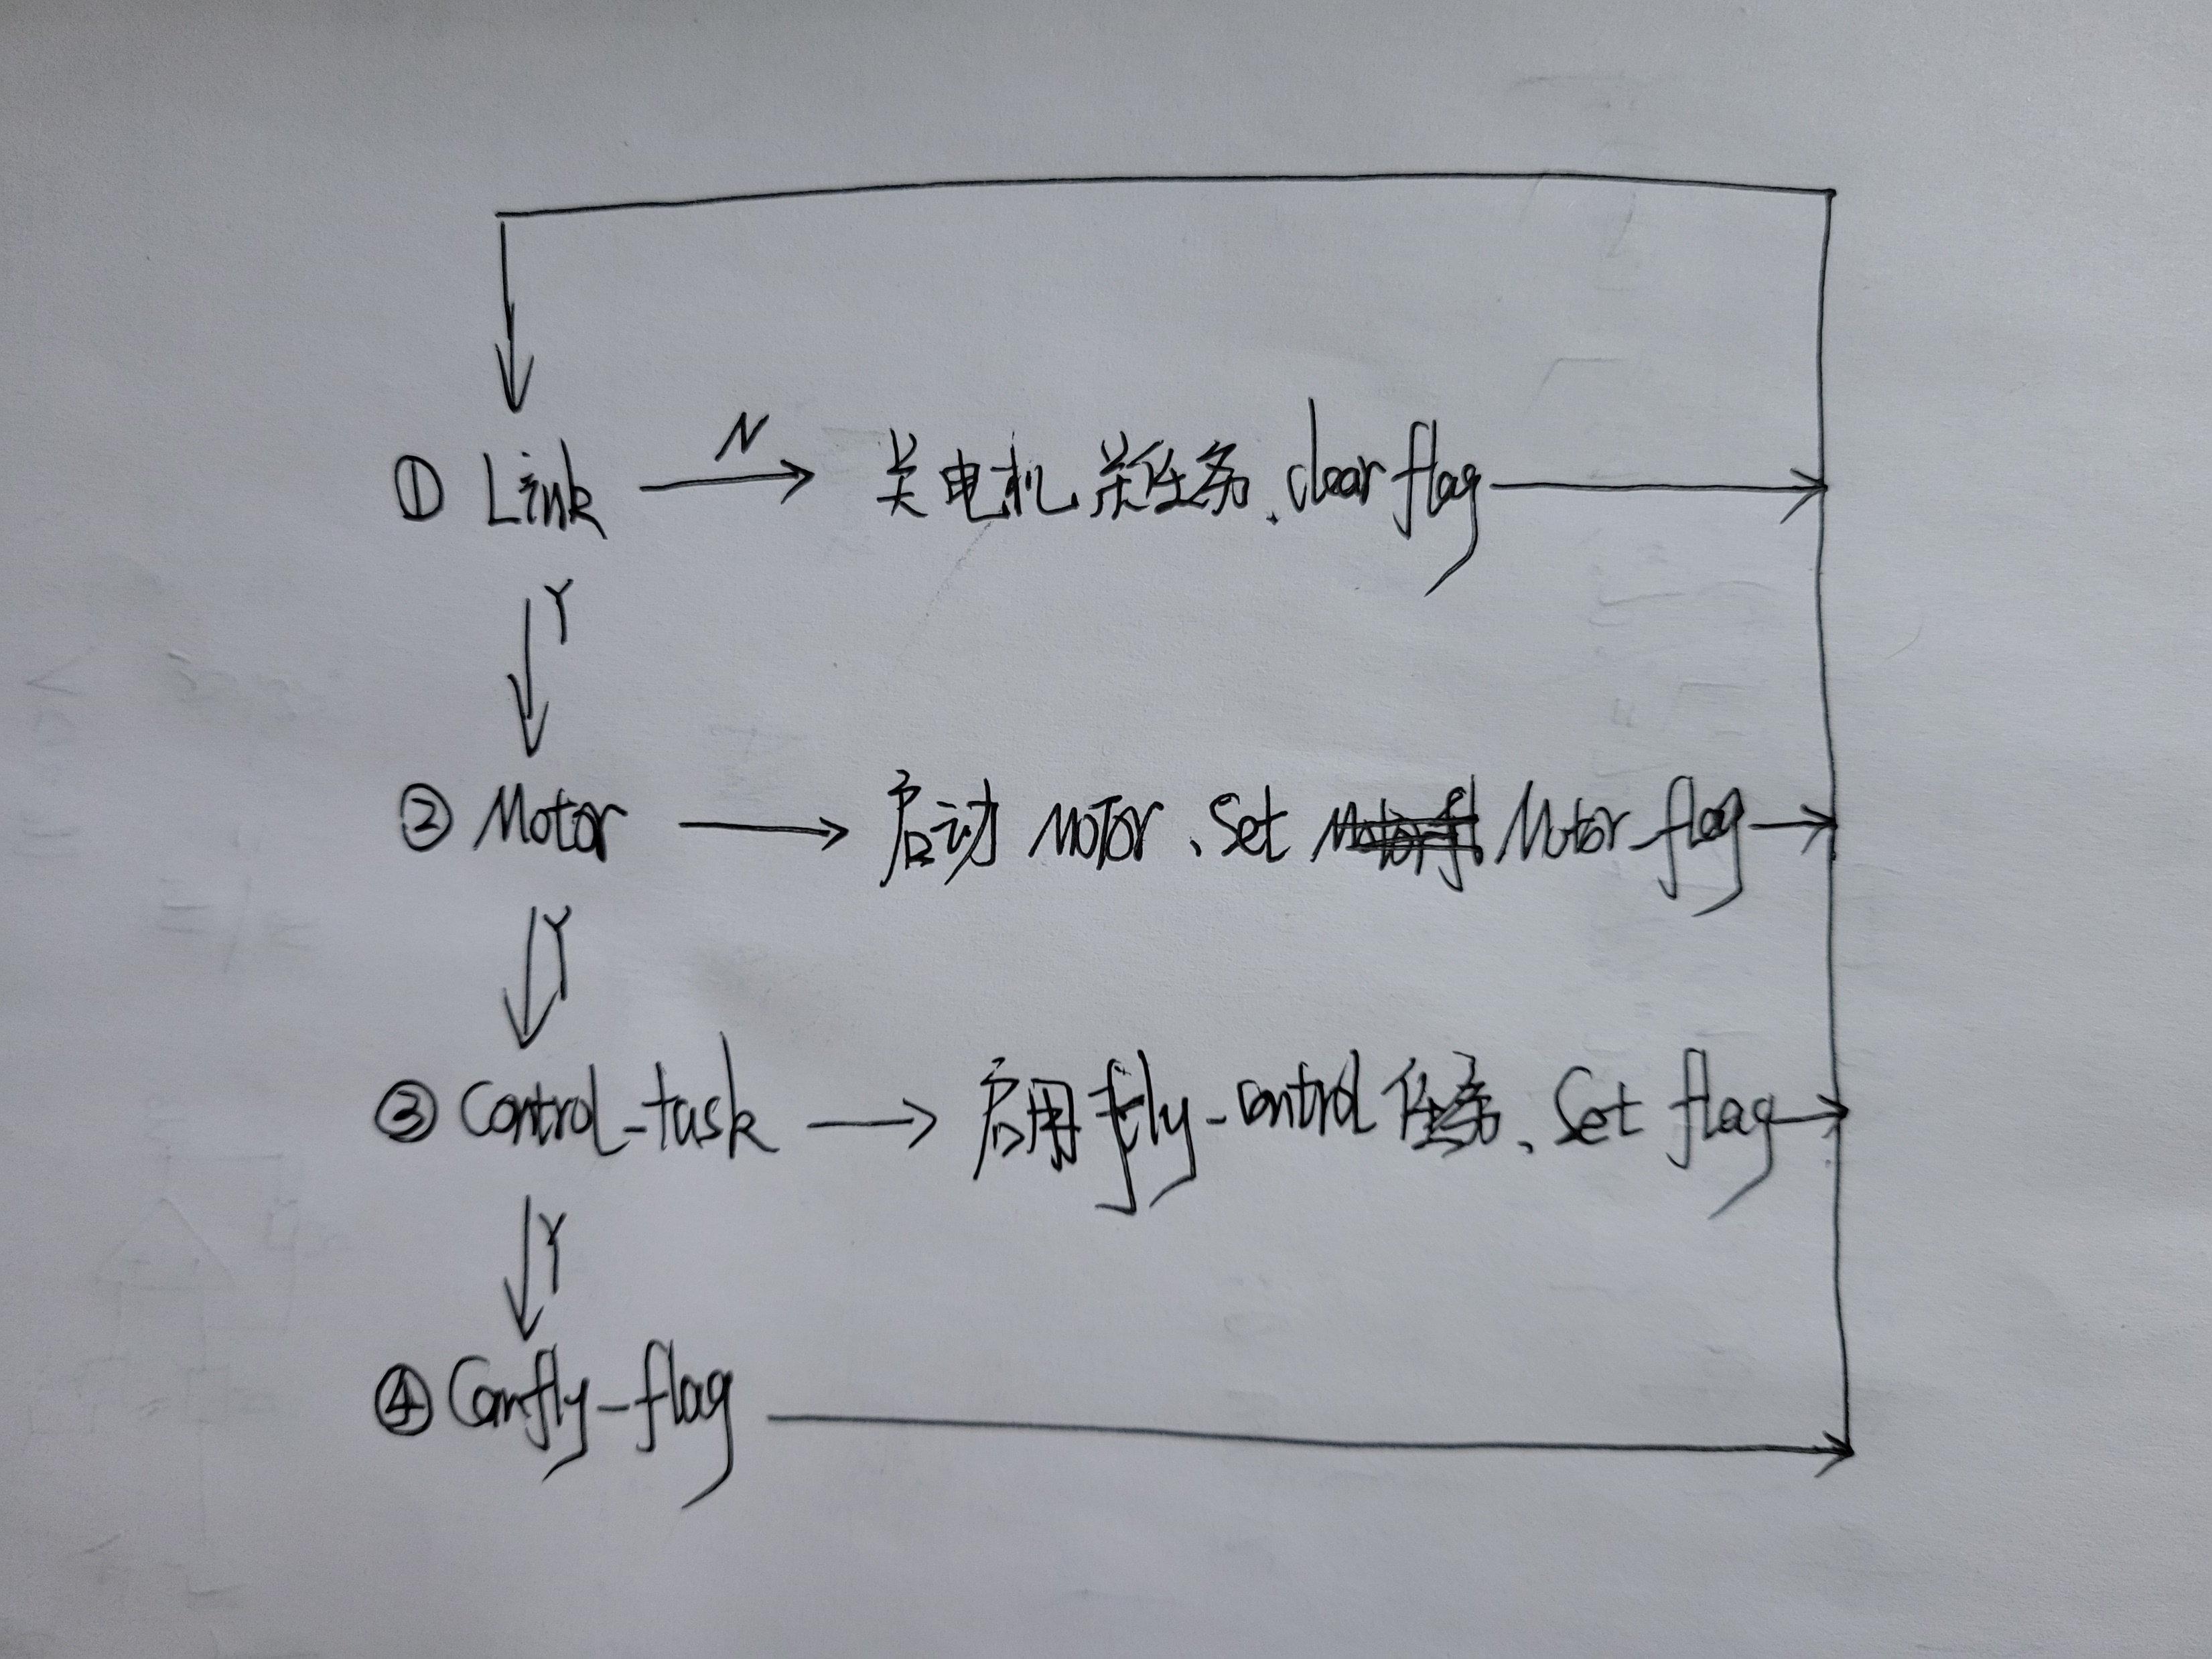 ① Link N 关电机 关任务、clear flag
Y
② Motor 启动 Motor、Set Motor_flag
Y
③ Control_task 启用 fly_control 任务、Set flag
Y
④ Canfly_flag